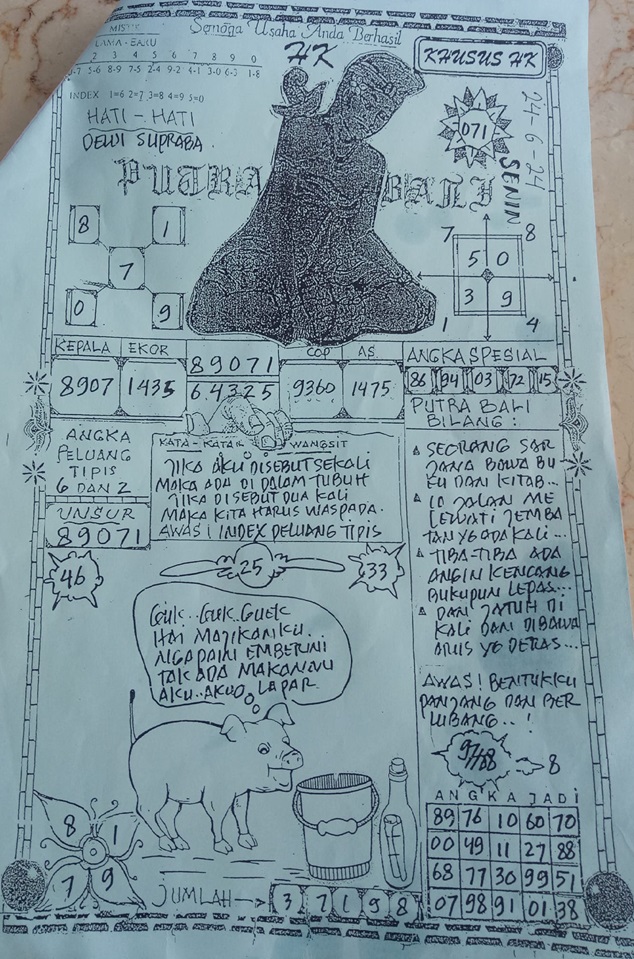 Semoga Usaha Anda Berhasil
LAMA - BARU
2 3 4 5 6 7 8 9 0
5-6 8-9 7-5 2-4 9-2 4-1 3-0 6-3 1-8
INDEX 1=6 2=7 3=8 4=9 5=0
HATI - HATI
DEWI SUPRABA.
HK
KHUSUS HK
071
24-6-24
SENIN
PUTRA BALI
8 1
7
0 9
7 8
5 0
3 9
1 4
KEPALA EKOR 89071 COP AS
8907 1435 6.4325 9360 1475
ANGKA SPESIAL
86 94 03 72 15
ANGKA
PELUANG
TIPIS
6 DAN 2
UNSUR
89071
KATA - KATA WANGSIT
JIKA AKU DISEBUT SEKALI
MAKA ADA DI DALAM TUBUH
JIKA DISEBUT DUA KALI
MAKA KITA HARUS WASPADA.
AWAS! INDEX PELUANG TIPIS
PUTRA BALI
BILANG :
SEORANG SAR
JANA BAWA BU
KU DAN KITAB...
JALAN ME
LEWATI JEMBA
TAN YG ADA KALI...
TIBA-TIBA ADA
ANGIN KENCANG
BUKUPUN LEPAS...
DAN JATUH DI
KALI DAN DIBAWA
ARUS YG DERAS...
AWAS! BENTUKKU
PANJANG DAN BER
LUBANG..!
46
25
33
GUK..GUK..GUEK
HAI MAJIKANKU.
NGAPAIN EMBERINI
TAK ADA MAKANNYA
AKU..AKU LAPAR
8
8 1
7 9
JUMLAH
3 7 1 9 8
ANGKA JADI
89 76 10 60 70
00 49 11 27 88
68 77 30 99 51
07 98 91 01 38